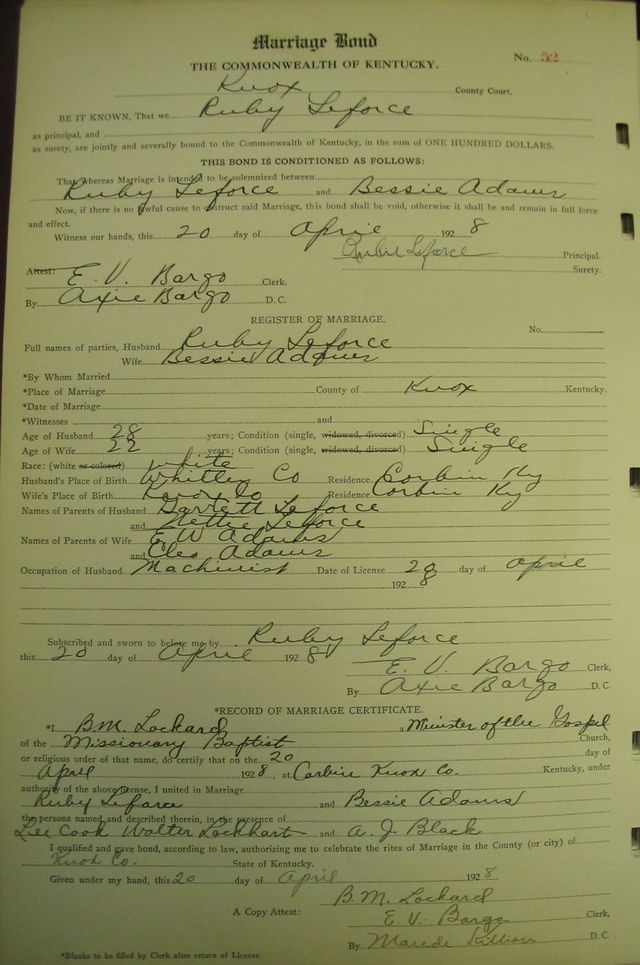 Marriage Bond
THE COMMONWEALTH OF KENTUCKY. No. 52
Knox County Court.
BE IT KNOWN, That we Ruby Leforce
as principal, and
as surety, are jointly and severally bound to the Commonwealth of Kentucky, in the sum of ONE HUNDRED DOLLARS.
THIS BOND IS CONDITIONED AS FOLLOWS:
That, whereas Marriage is intended to be solemnized between
Ruby Leforce and Bessie Adams
Now, if there is no lawful cause to obstruct said Marriage, this bond shall be void, otherwise it shall be and remain in full force
and effect.
Witness our hands, this 20 day of April 1928
Leforce Principal.
Surety.
Attest: E. V. Bargo Clerk.
By Axie Bargo D. C.
REGISTER OF MARRIAGE.
No.
Full names of parties, Husband Ruby Leforce
Wife Bessie Adams
*By Whom Married
*Place of Marriage County of Knox Kentucky.
*Date of Marriage
*Witnesses and
Age of Husband 28 years; Condition (single, widowed, divorced) Single
Age of Wife 22 years; Condition (single, widowed, divorced) Single
Race: (white or colored) white
Husband's Place of Birth Whitley Co Residence Corbin Ky
Wife's Place of Birth Knox Co Residence Corbin Ky
Names of Parents of Husband Garrett Leforce
and Nettie Leforce
Names of Parents of Wife E W Adams
and Cleo Adams
Occupation of Husband Machinist Date of License 20 day of April
1928
Subscribed and sworn to before me by Ruby Leforce
this 20 day of April 1928
E. V. Bargo Clerk,
By Axie Bargo D. C.
*RECORD OF MARRIAGE CERTIFICATE.
*I B.M. Lockard a Minister of the Gospel
of the Missionary Baptist Church,
or religious order of that name, do certify that on the 20 day of
April 1928, at Corbin Knox Co. Kentucky, under
authority of the above license, I united in Marriage
Ruby Leforce and Bessie Adams
the persons named and described therein, in the presence of
Lee Cook Walter Lockhart and A. J. Black
I qualified and gave bond, according to law, authorizing me to celebrate the rites of Marriage in the County (or city) of
Knox Co. State of Kentucky.
Given under my hand, this 20 day of April 1928
B.M. Lockard
A Copy Attest: E. V. Bargo Clerk,
By Maude D. C.
*Blanks to be filled by Clerk after return of License.